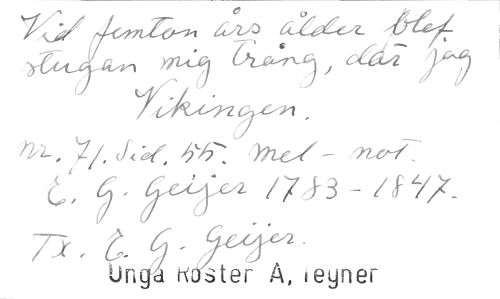 Vid femton års ålder blef
stugan mig trång, där jag
Vikingen.
nr. 71. Sid. 55. mel-not.
E. G. Geijer 1783-1847.
Tx. E. G. Geijer.
Unga Röster A, Teyner